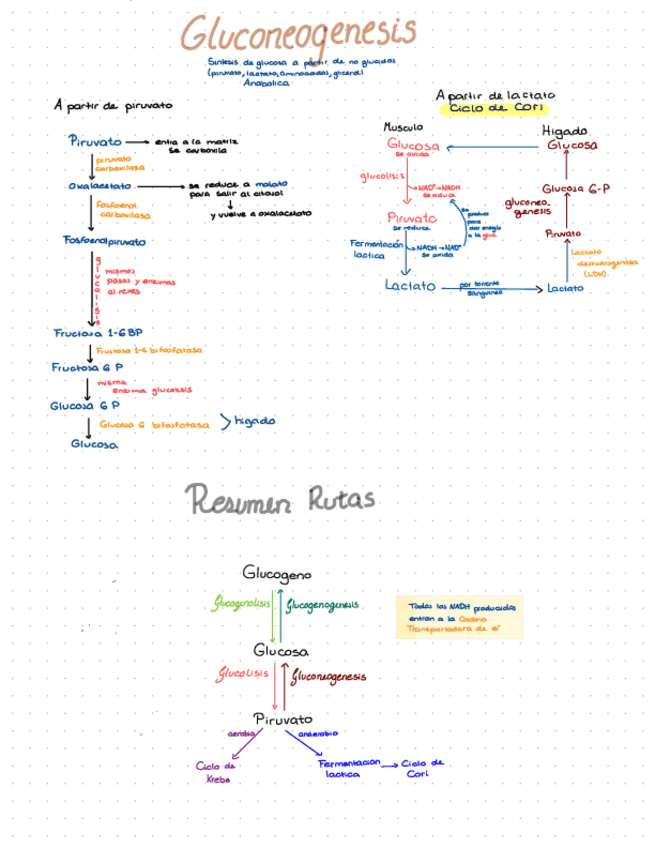 Gluconeogenesis
Síntesis de glucosa a partir de no glúcidos
(piruvato, lactato, aminoácidos, glicerol)
Anabólica
A partir de piruvato
Piruvato → entra a la matriz
se carboxila
piruvato
carboxilasa
Oxalacetato → se reduce a malato
para salir al citosol
→ y vuelve a oxalacetato
fosfoenol
carboxilasa
Fosfoenolpiruvato
glucolisis
mismos
pasos y enzimas
al reves
Fructosa 1-6BP
Fructosa 1-6 bifosfatasa
Fructosa 6 P
misma
enzima glucolisis
Glucosa 6 P
Glucosa 6 bifosfatasa
higado
Glucosa
A partir de lactato
Ciclo de Cori
Musculo
Higado
Glucosa
se oxida
Glucosa
glucolisis
NAD+→NADH
se reduce
Glucosa 6-P
gluconeo-
genesis
se
produce
para
dar energia
a la gluc.
Piruvato
se reduce
Piruvato
Fermentación
lactica
NADH→NAD+
se oxida
Lactato
deshidrogenasa
(LDH)
Lactato
por torrente
sanguineo
Lactato
Resumen Rutas
Glucogeno
Glucogenolisis
Glucogenogenesis
Todos los NADH producidos
entran a la Cadena
Transportadora de e-
Glucosa
Glucolisis
Gluconeogenesis
Piruvato
aerobio
anaerobio
Ciclo de
Krebs
Fermentación
lactica
→ Ciclo de
Cori